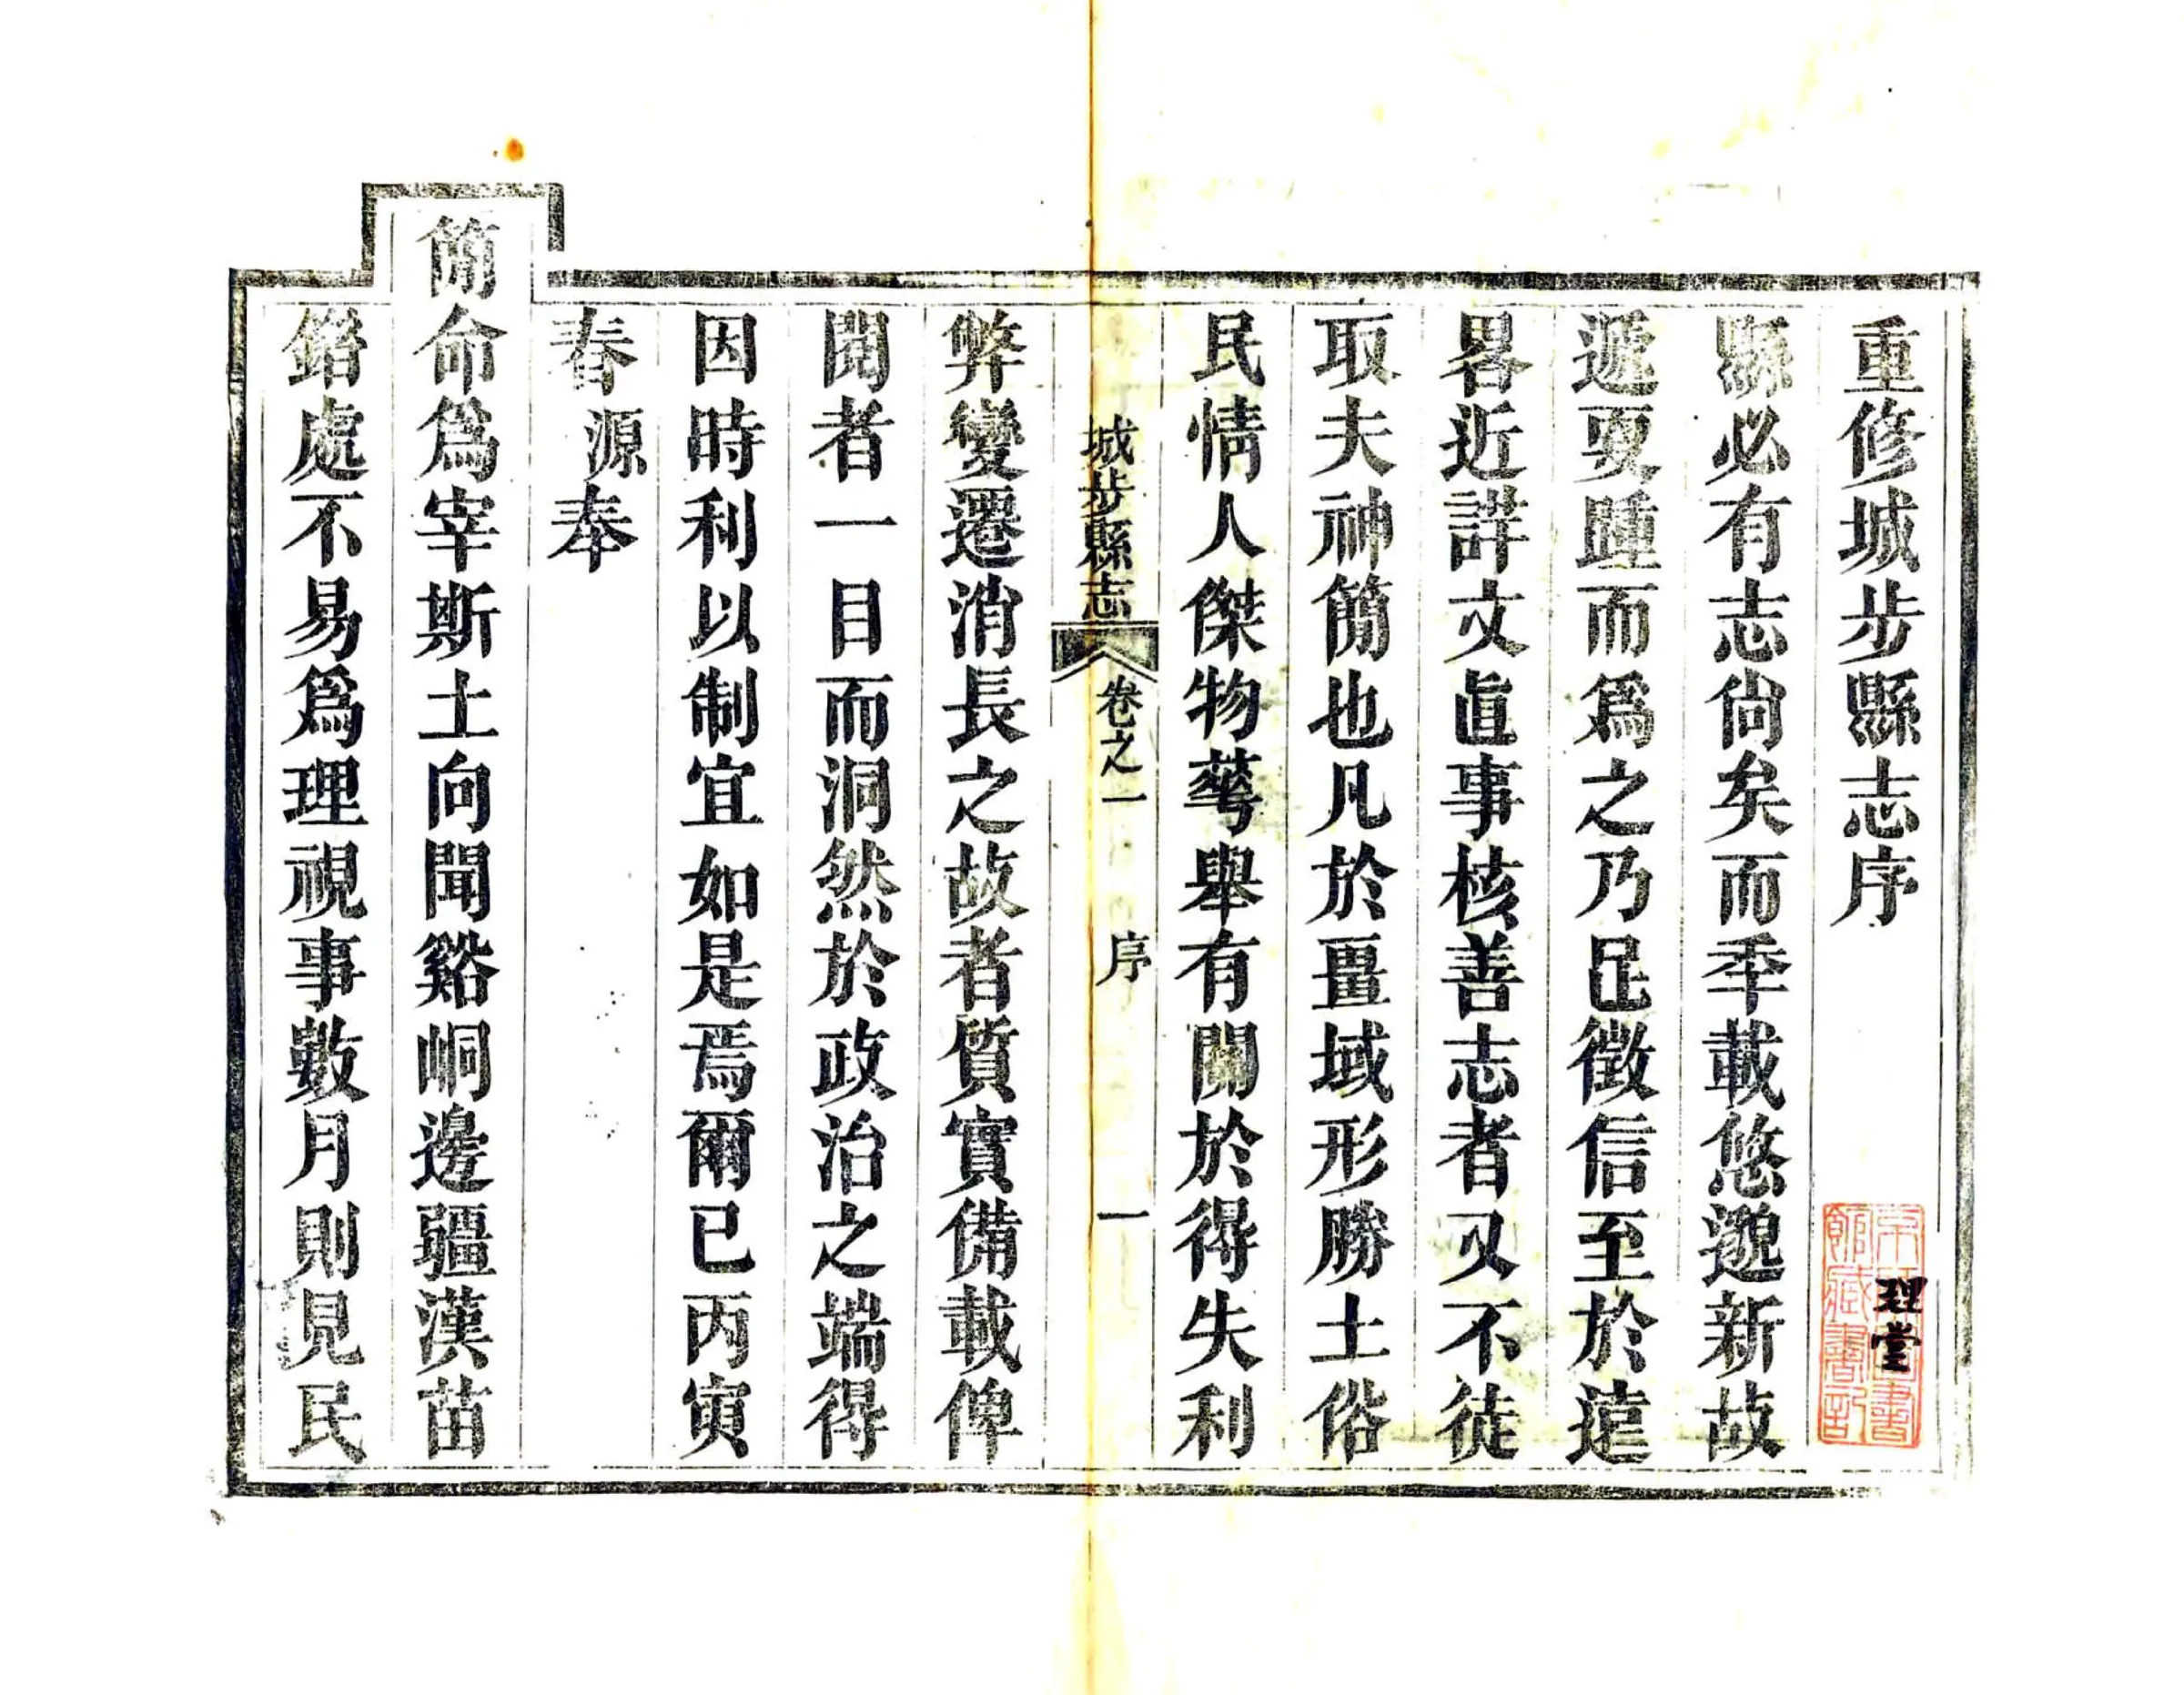 重修城步縣志序
縣必有志尙矣而季載悠邈新故
遞更踵而爲之乃足徵信至於遠
畧近詳文直事核善志者又不徒
取夫神簡也凡於畺域形勝土俗
民情人傑物蕚舉有關於得失利
城步縣志
卷之一
序
一
弊變遷消長之故者質實備載俾
閱者一目而洞然於政治之端得
因時利以制宜如是焉爾已丙寅
春源奉
簡命爲宰斯土向聞谿峒邊疆漢苗
錯處不易爲理視事數月則見民
理堂